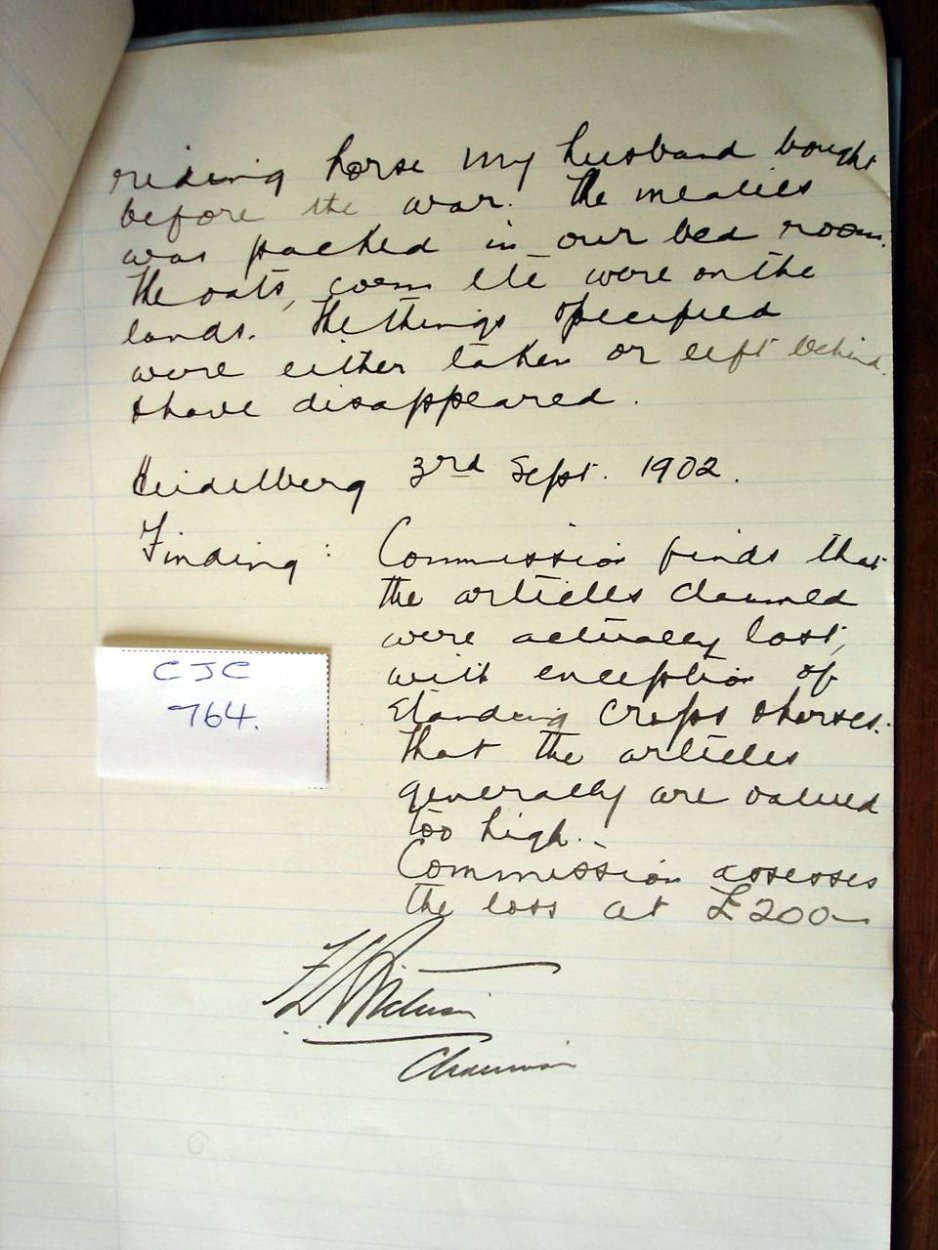 riding horse my husband bought
before the war. The mealies
was packed in our bed room.
The oats, corn etc were on the
lands. The things specified
were either taken or left behind
& have disappeared.
Heidelberg 3rd Sept. 1902.
Finding: Commission finds that
the articles claimed
were actually lost,
with exception of
standing crops & horses.
that the articles
generally are valued
too high.
Commission assesses
the loss at £200—
Chairman
CJC
764.